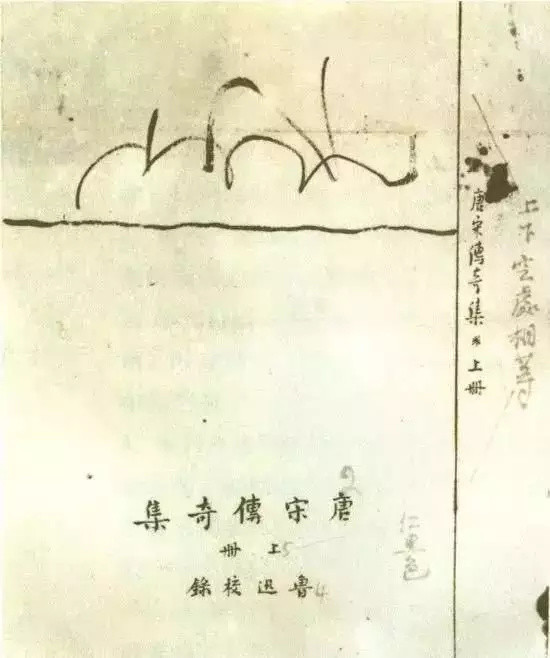 上下空處相等
唐宋傳奇集 * 上冊
2
唐宋傳奇集
上冊 5
魯迅校錄 4
色